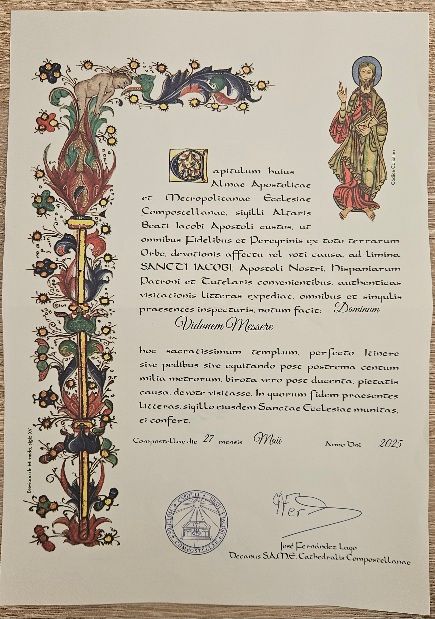 Capitulum huius
Almae Apostolicae
et Metropolitanae Ecclesiae
Compostellanae, sigilli Altaris
Beati Iacobi Apostoli custos, ut
omnibus Fidelibus et Peregrinis ex toto terrarum
Orbe, devotionis affectu vel voti causa, ad limina
SANCTI IACOBI, Apostoli Nostri, Hispaniarum
Patroni et Tutelaris convenientibus, authenticas
visitationis litteras expediat, omnibus et singulis
praesentes inspecturis, notum facit: Dominum
hoc sacratissimum templum, perfecto Itinere
sive pedibus sive equitando post postrema centum
milia metrorum, birota vero post ducenta, pietatis
causa, devote visitasse. In quorum fidem praesentes
litteras, sigillo eiusdem Sanctae Ecclesiae munitas,
ei confert.
Compostellae die 27 mensis Maii Anno Dni 2025
José Fernández Lago
Decanus S.A.M.E. Cathedralis Compostellanae